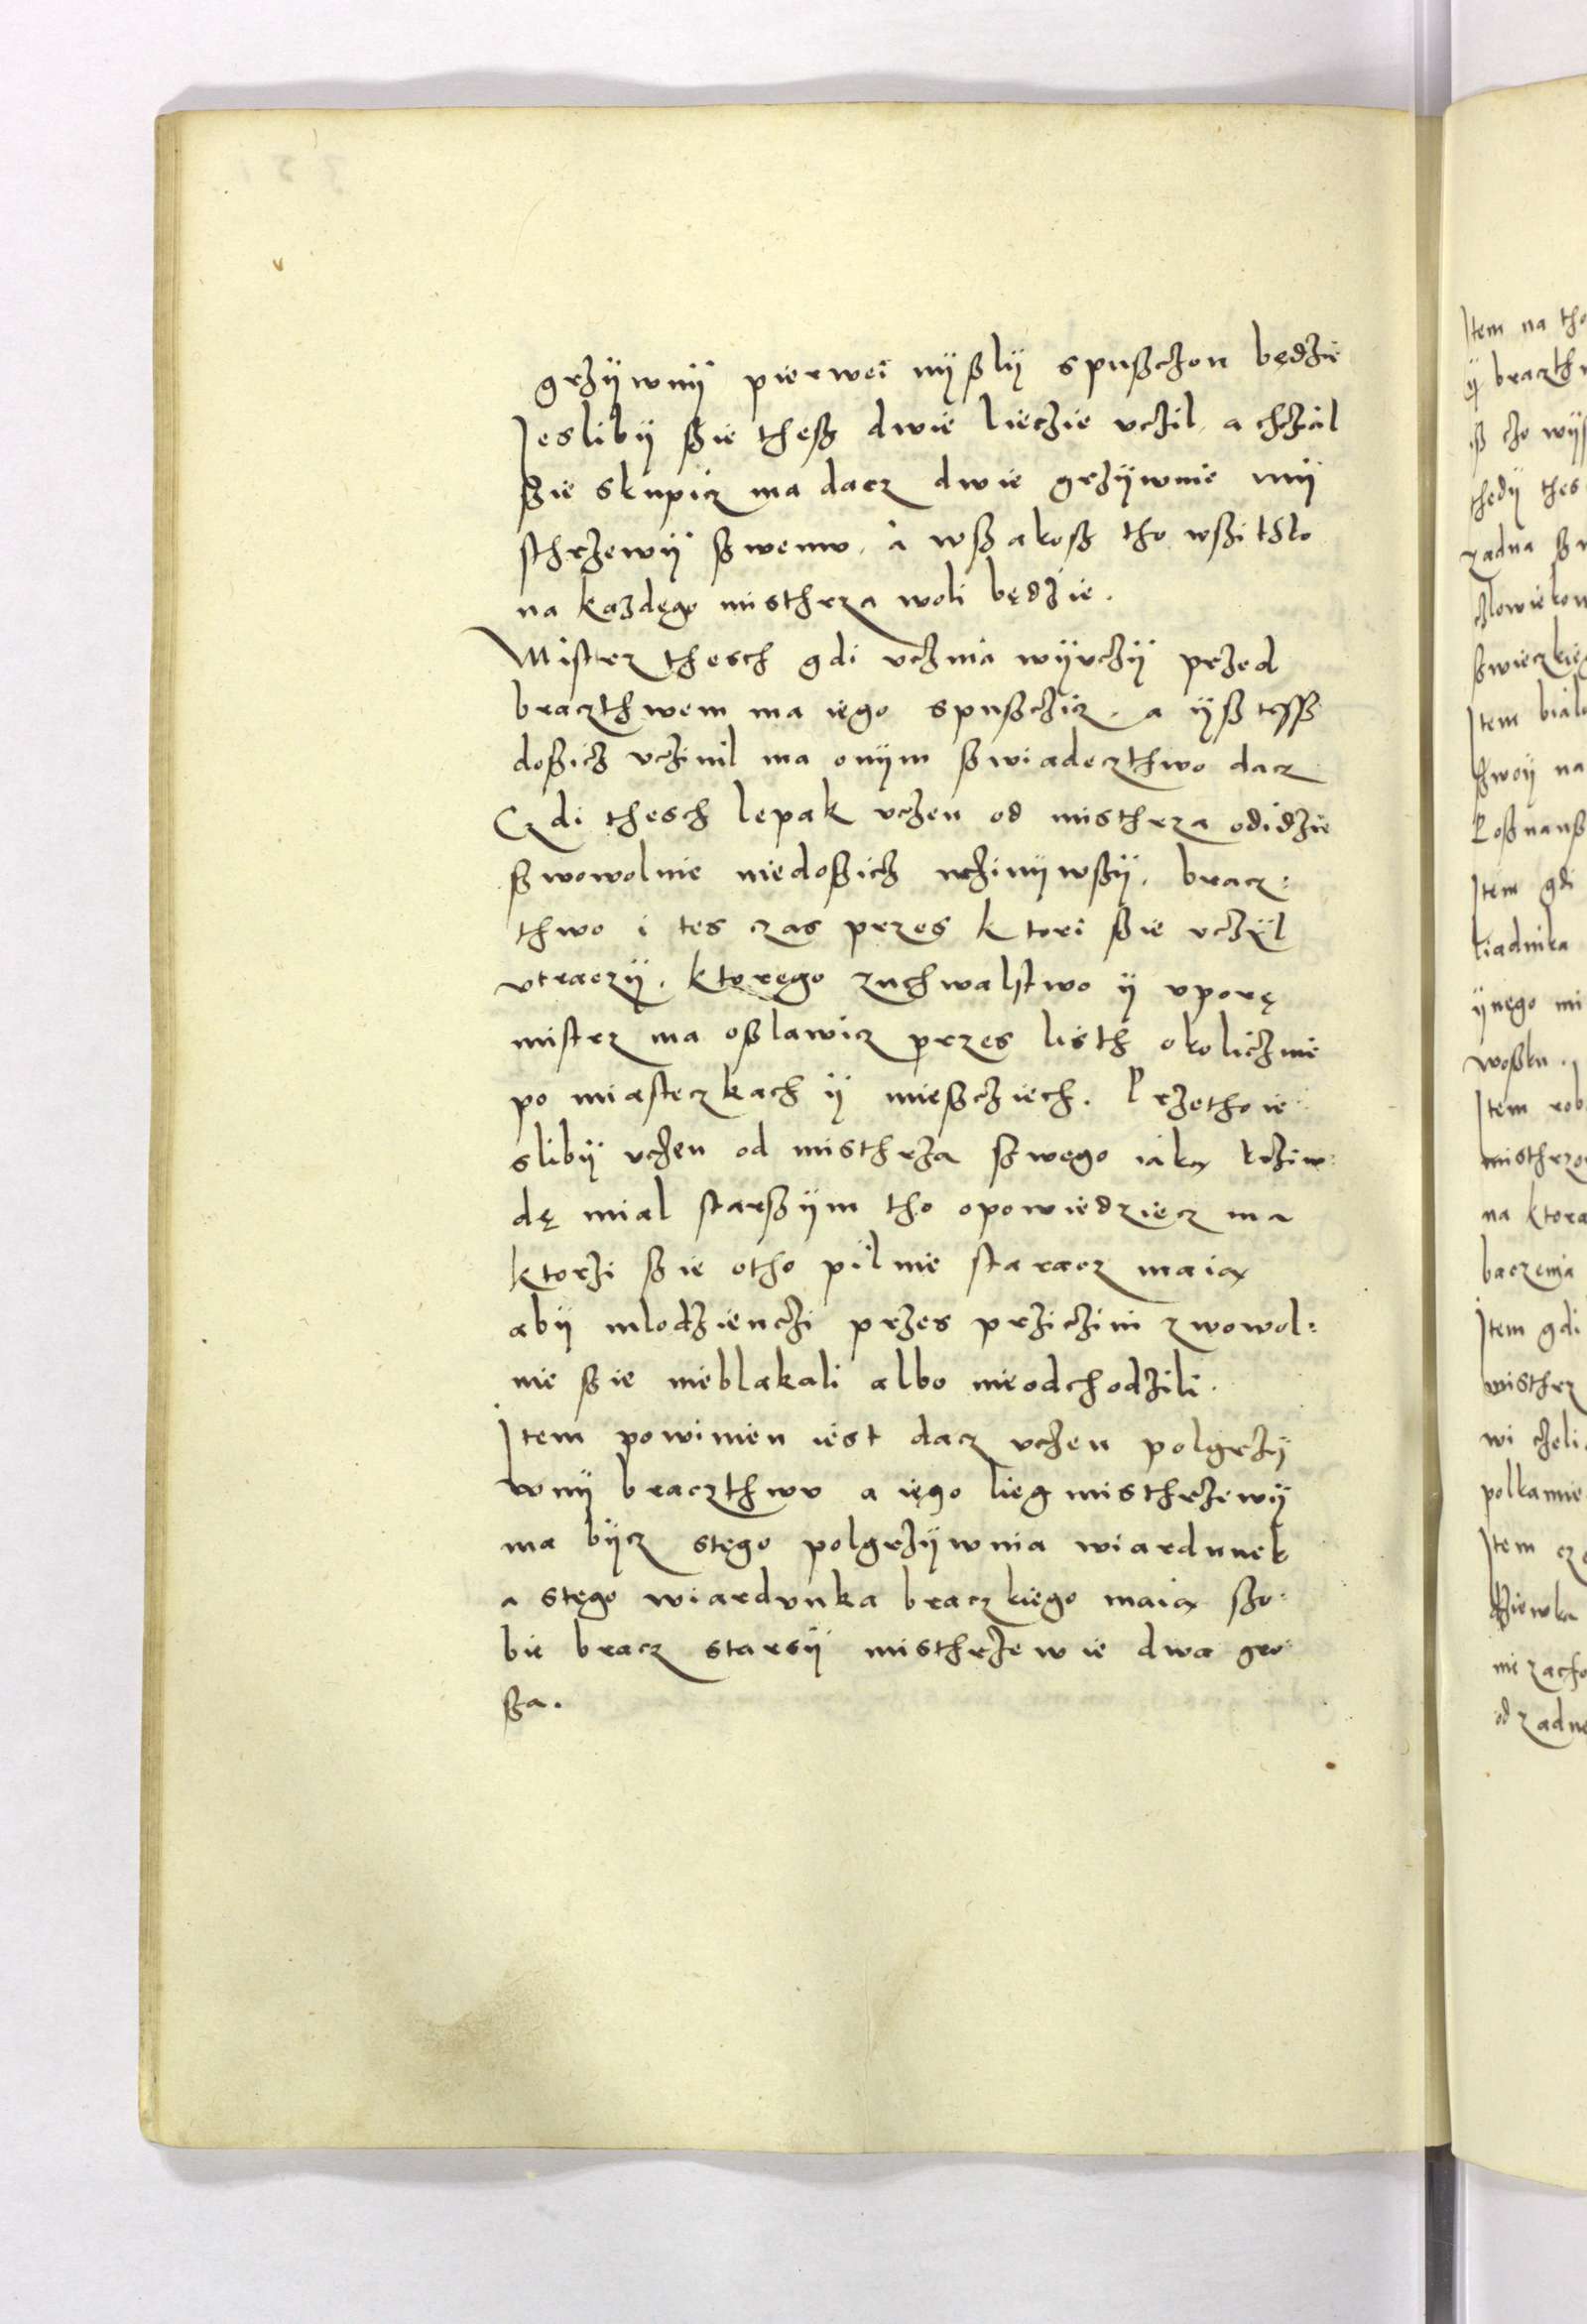 grzÿwnÿ pierwei nÿßlÿ spußczon będzie
Jeslibÿ ßie theß dwie lieczie vczil, a chczial
ßie skupicz ma dacz dwie grzÿwnie mÿ
sthrzewÿ ßwemv, a wßakoß tho wßithko
na kazdęgo misthrza woli będzie.
Mistrz thesch gdi vcznia wÿvczÿ przed
braczthwem ma iego spußczicz, a ÿß tesß
doßicz vczinil ma onÿm ßwiadeczthwo dacz
Gdi thesch lepak vczen od misthrza odidzie
ßwowolnie niedoßicz vczinÿwßÿ, bracz:
thwo i tes czas przes ktori ßie vczÿl
vtraczÿ, ktoręgo zuchwalstwo ÿ vporę
mistrz ma oßlawicz przes listh okolicznie
po miasteczkach ÿ mießcziech. Przetho ie
slibÿ vczen od misthrza ßwęgo iaką krziw:
dę mial starßÿm tho opowiedziecz ma
ktorzi ßie otho pilnie staracz maią
abÿ mlodzienczi przes prziczini zwowol:
nie ßie nieblakali albo nieodchodzili.
Item powinien iest dacz vczen polgrzÿ
wnÿ braczthwv a ięgo lieg misthrzewÿ
ma bÿcz stęgo polgrzÿwnia wiardunek
a stęgo wiardvnka braczkiego maią ßo:
bie bracz starsÿ misthrzewie dwa gro
ßa.
Item na tho
ÿ braczth
iß cho wÿ
thedÿ thes
zadna ß
czlowiekow
ßwieczkieg
Item bialo
ßwoÿ na
Item gdi
liadnika
ÿnęgo mi
woßku.
Item rob
misthrzo
na ktora
baczenia
Item gdi
misthrz
wi czeli
polkamie
Item cz
dziewka
nie zacho
od zadne